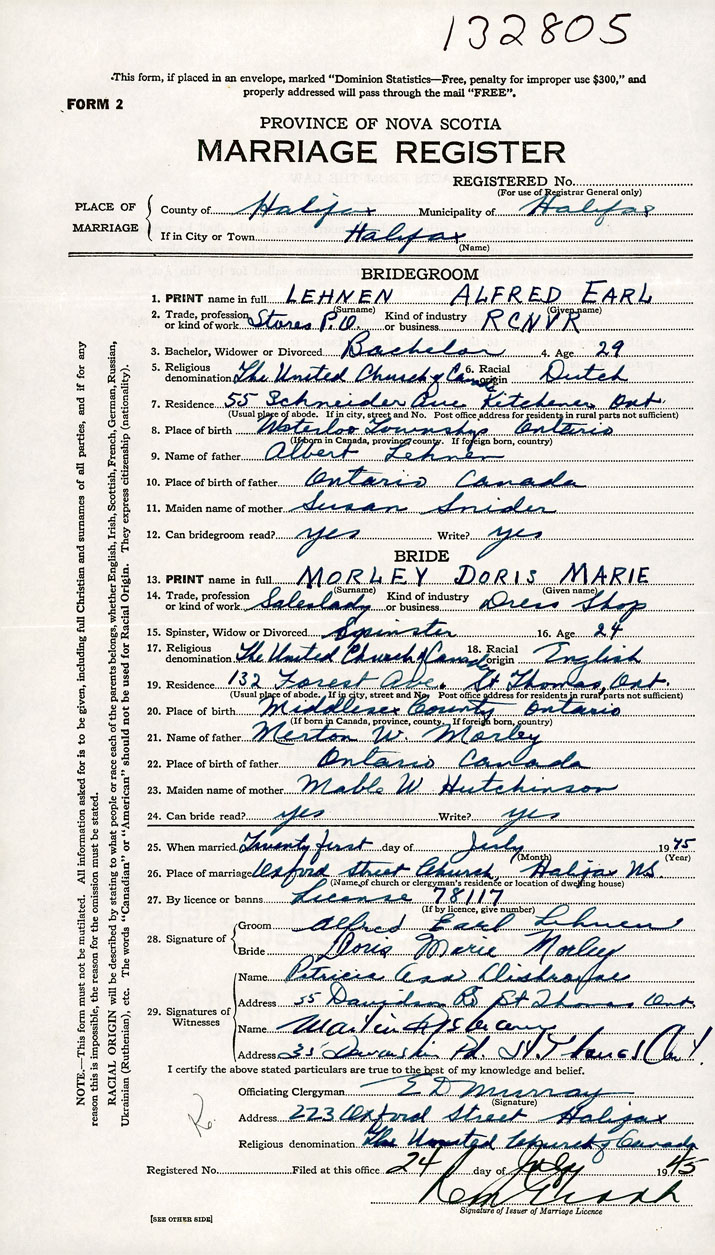 132805
·This form, if placed in an envelope, marked "Dominion Statistics—Free, penalty for improper use $300," and
properly addressed will pass through the mail "FREE".
FORM 2
PROVINCE OF NOVA SCOTIA
MARRIAGE REGISTER
REGISTERED No.
(For use of Registrar General only)
PLACE OF MARRIAGE
County of Halifax Municipality of Halifax
If in City or Town Halifax
(Name)
BRIDEGROOM
1. PRINT name in full LEHNEN ALFRED EARL
(Surname) (Given name)
2. Trade, profession or kind of work Stores P.O. Kind of industry or business RCNVR
3. Bachelor, Widower or Divorced Bachelor 4. Age 29
5. Religious denomination The United Church of Canada 6. Racial origin Dutch
7. Residence 55 Schneider Ave Kitchener Ont.
(Usual place of abode. If in city, street and No. Post office address for residents in rural parts not sufficient)
8. Place of birth Waterloo Township Ontario
(If born in Canada, province, county. If foreign born, country)
9. Name of father Albert Lehnen
10. Place of birth of father Ontario Canada
11. Maiden name of mother Susan Snider
12. Can bridegroom read? yes Write? yes
BRIDE
13. PRINT name in full MORLEY DORIS MARIE
(Surname) (Given name)
14. Trade, profession or kind of work Saleslady Kind of industry or business Dress Shop
15. Spinster, Widow or Divorced Spinster 16. Age 24
17. Religious denomination The United Church of Canada 18. Racial origin English
19. Residence 132 Forest Ave., St Thomas, Ont.
(Usual place of abode. If in city, street and No. Post office address for residents in rural parts not sufficient)
20. Place of birth Middlesex County Ontario
(If born in Canada, province, county. If foreign born, country)
21. Name of father Merton W. Morley
22. Place of birth of father Ontario Canada
23. Maiden name of mother Mable W Hutchinson
24. Can bride read? yes Write? yes
25. When married Twenty first day of July 1945
(Month) (Year)
26. Place of marriage Oxford street Church, Halifax N.S.
(Name of church or clergyman's residence or location of dwelling house)
27. By licence or banns License 78117
(If by licence, give number)
28. Signature of
Groom Alfred Earl Lehnen
Bride Doris Marie Morley
29. Signatures of Witnesses
Name Patricia Ann
Address 55 Davidson Rd St Thomas Ont.
Name
Address Rd. St Thomas Ont
I certify the above stated particulars are true to the best of my knowledge and belief.
Officiating Clergyman E D Murray
(Signature)
Address 223 Oxford Street Halifax
Religious denomination The United Church of Canada
Registered No. Filed at this office 24 day of July 1945
Signature of Issuer of Marriage Licence
[SEE OTHER SIDE]
NOTE.—This form must not be mutilated. All information asked for is to be given, including full Christian and surnames of all parties, and if for any
reason this is impossible, the reason for the omission must be stated.
RACIAL ORIGIN will be described by stating to what people or race each of the parents belongs, whether English, Irish, Scottish, French, German, Russian,
Ukrainian (Ruthenian), etc. The words "Canadian" or "American" should not be used for Racial Origin. They express citizenship (nationality).